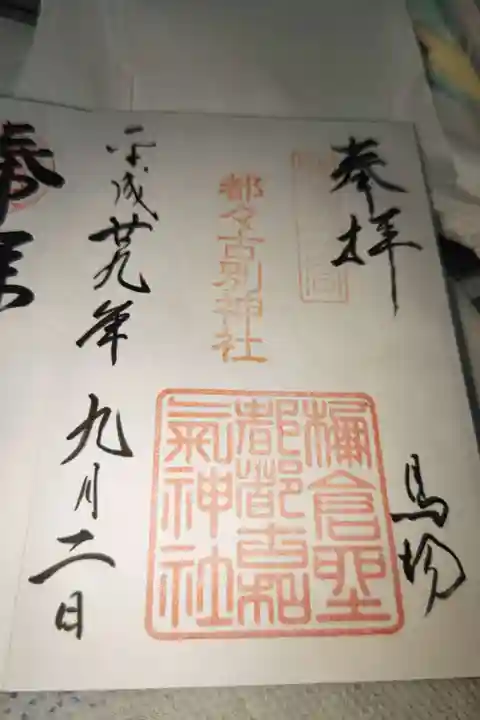 奉拝
馬場
都々古別神社
棚倉野
都都古和
氣神社
平成廿九年九月二日
奉拝